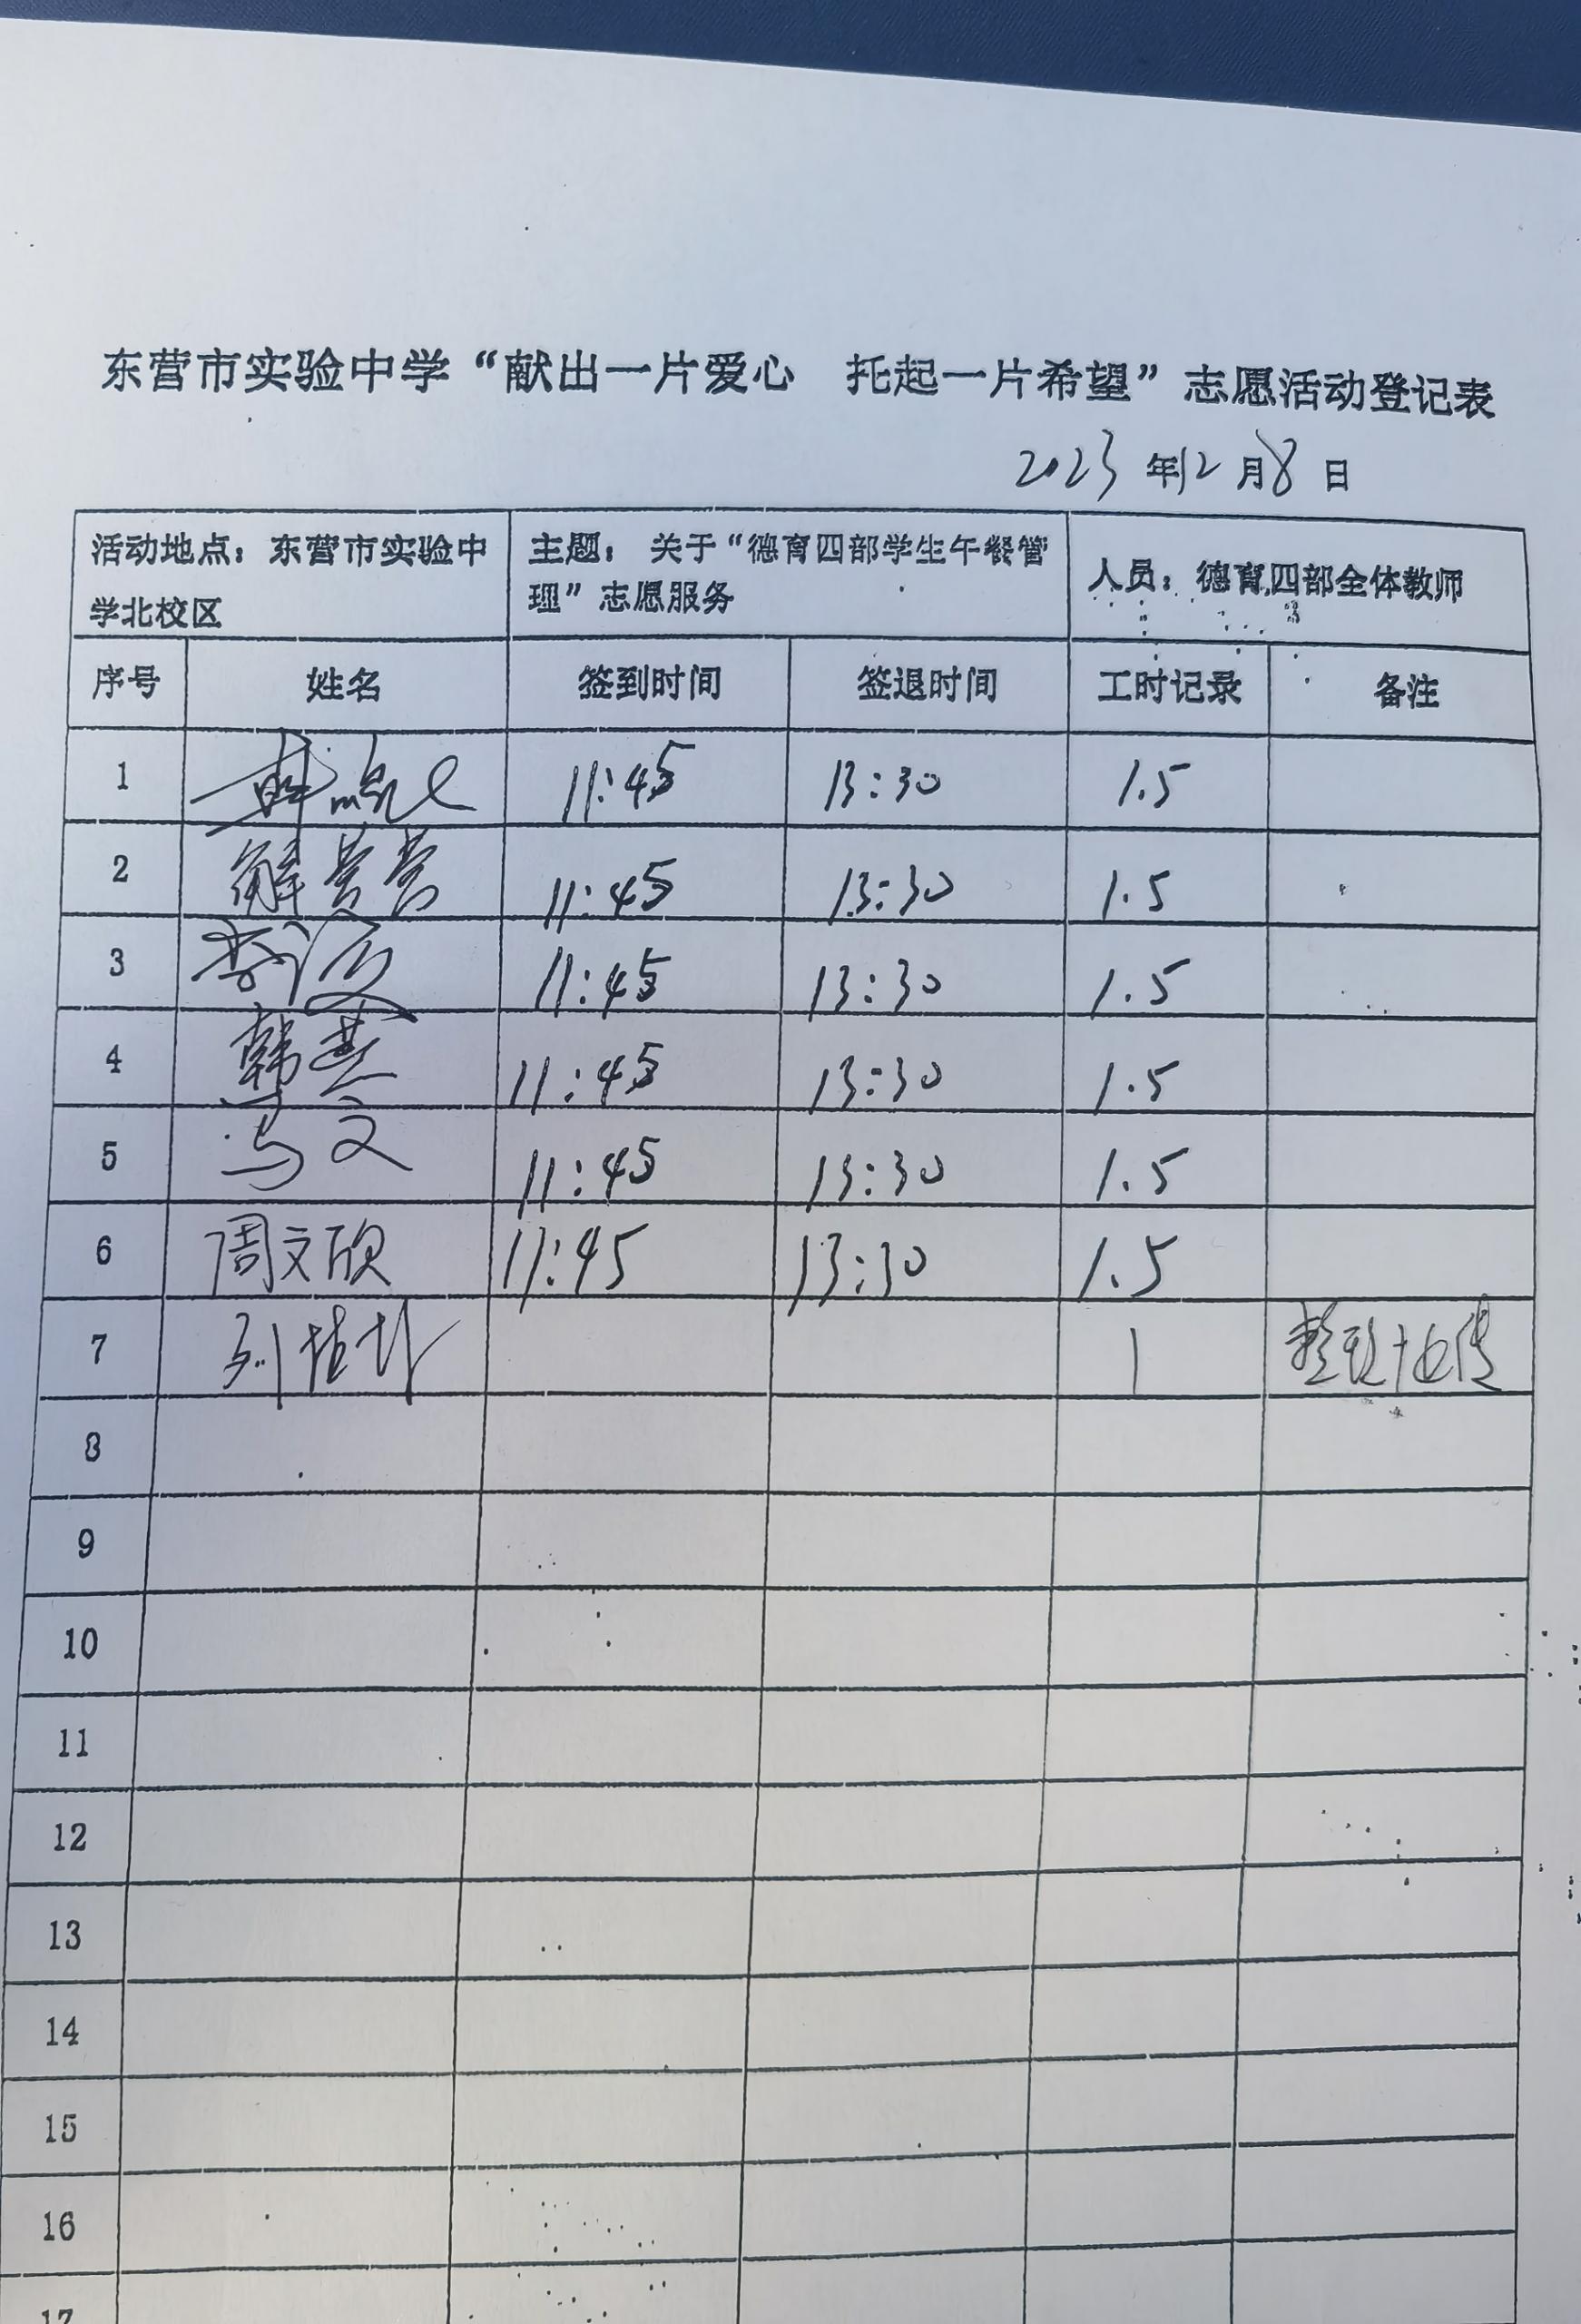 东营市实验中学“献出一片爱心 托起一片希望”志愿活动登记表
2023年12月8日
活动地点：东营市实验中
学北校区
主题： 关于“德育四部学生午餐管
理”志愿服务
人员：德育四部全体教师
序号 姓名 签到时间 签退时间 工时记录 备注
1 11:45 13:30 1.5
2 解 11:45 13:30 1.5
3 11:45 13:30 1.5
4 韩燕 11:45 13:30 1.5
5 马文 11:45 13:30 1.5
6 周文欣 11:45 13:30 1.5
7 刘 1
8
9
10
11
12
13
14
15
16
17